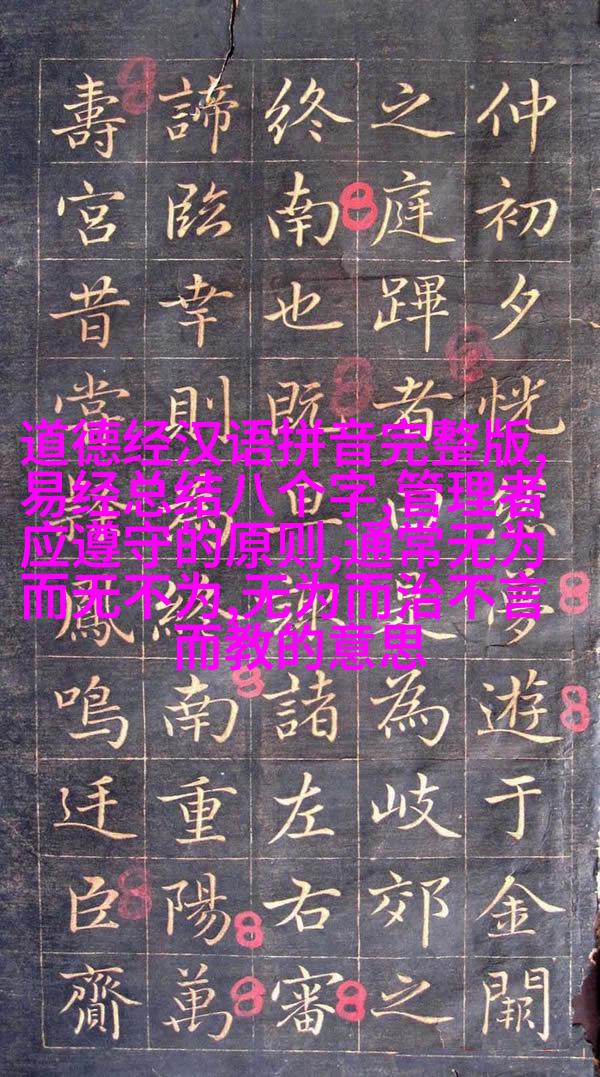 道德经汉语拼音完整版,
易经总结八个字,管理者
应遵守的原则,通常无为
而无不为,无为而治不言
而教的意思
仲初夕恍夢遊于金闕
之庭蹕者為岐郊之
終南也既諸左右審
諦臨幸則終南重陽萬
壽宮昔常鳳鳴迋臣齎